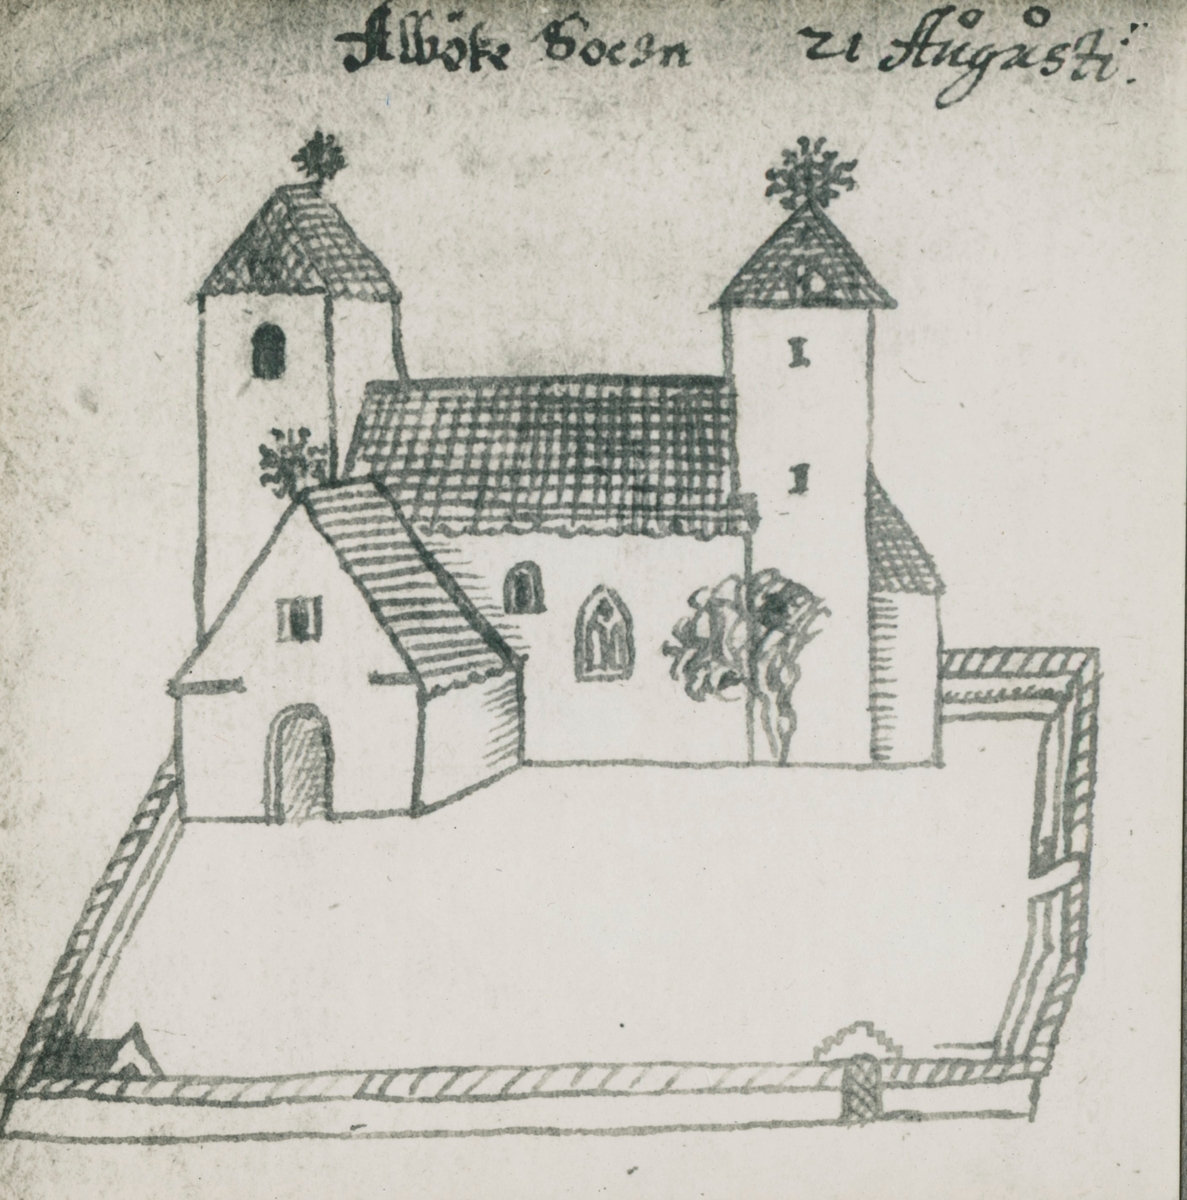 Alböke Socn 21 Augusti